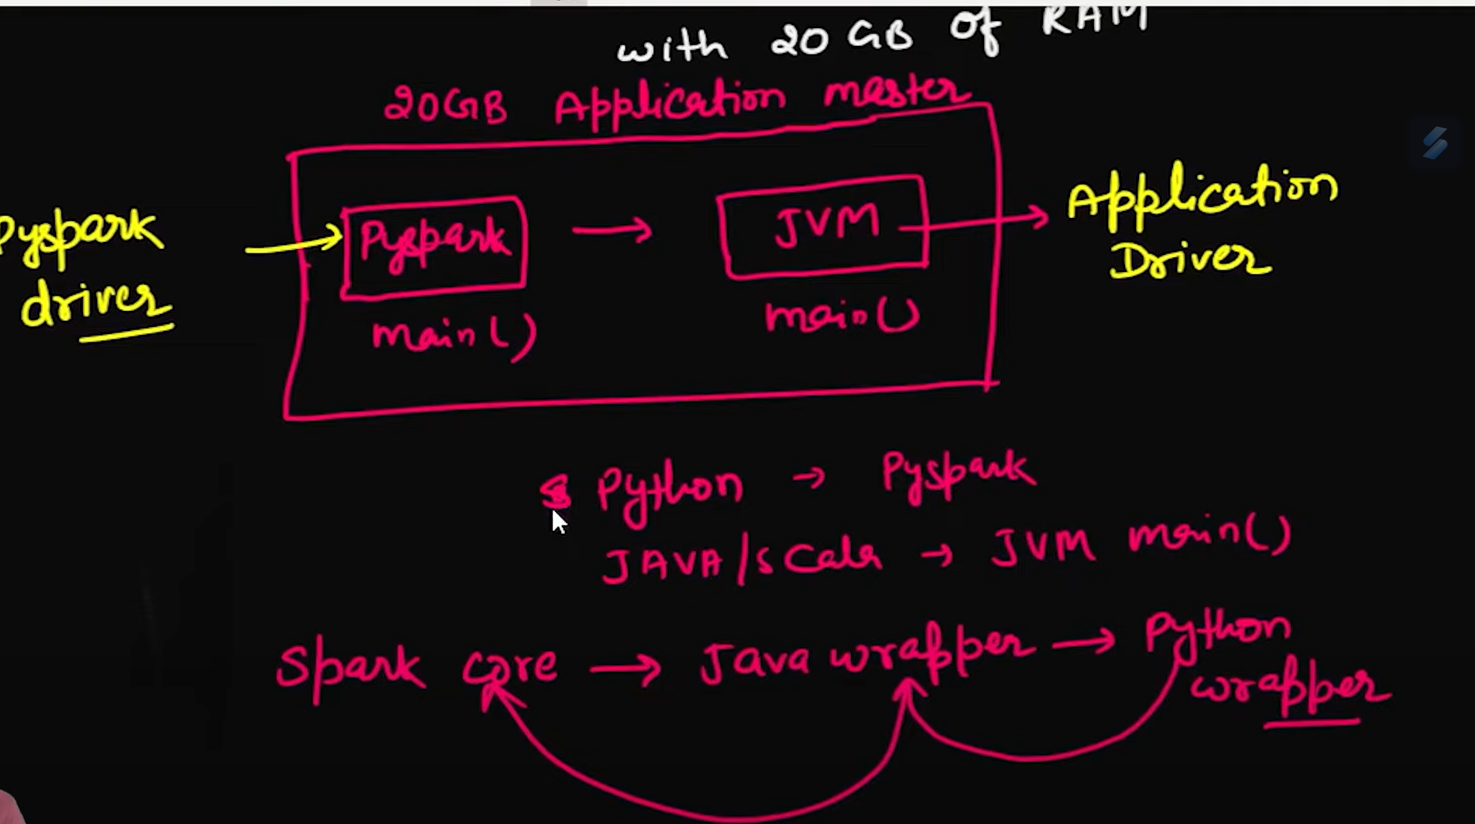 with 20 GB of RAM
20GB Application master
Pyspark driver
Pyspark
main()
JVM
main()
Application Driver
Python → Pyspark
JAVA/scala → JVM main()
Spark core → Java wrapper → Python wrapper